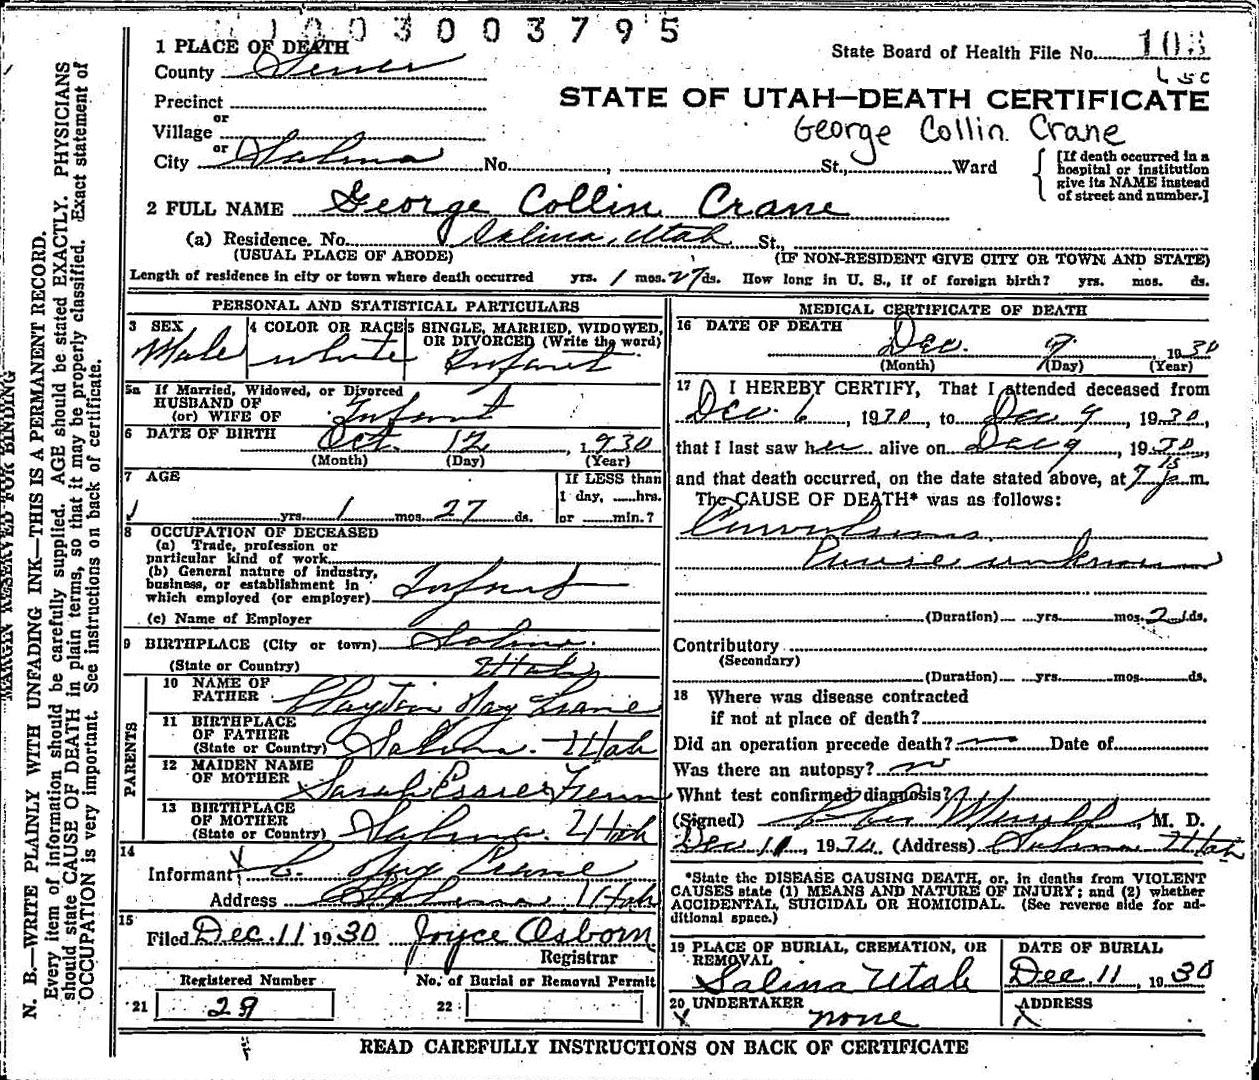 1003003795
1 PLACE OF DEATH
State Board of Health File No. 103
County Sevier
Precinct
STATE OF UTAH—DEATH CERTIFICATE
or
Village
George Collin Crane
or
City Salina No. , St., Ward
[If death occurred in a
hospital or institution
give its NAME instead
of street and number.]
2 FULL NAME George Collin Crane
(a) Residence. No. Salina, Utah St.,
(USUAL PLACE OF ABODE) (IF NON-RESIDENT GIVE CITY OR TOWN AND STATE)
Length of residence in city or town where death occurred yrs. 1 mos. 27 ds. How long in U. S., if of foreign birth? yrs. mos. ds.
PERSONAL AND STATISTICAL PARTICULARS
3 SEX 4 COLOR OR RACE 5 SINGLE, MARRIED, WIDOWED,
OR DIVORCED (Write the word)
Male white Infant
5a If Married, Widowed, or Divorced
HUSBAND OF
(or) WIFE OF Infant
6 DATE OF BIRTH Oct. 12, 1930
(Month) (Day) (Year)
7 AGE
If LESS than
1 day, hrs.
yrs. 1 mos. 27 ds. or min.?
8 OCCUPATION OF DECEASED
(a) Trade, profession or
particular kind of work
(b) General nature of industry,
business, or establishment in
which employed (or employer) Infant
(c) Name of Employer
9 BIRTHPLACE (City or town) Salina
(State or Country) Utah
PARENTS
10 NAME OF
FATHER Clayton Ray Crane
11 BIRTHPLACE
OF FATHER
(State or Country) Salina Utah
12 MAIDEN NAME
OF MOTHER Sarah
13 BIRTHPLACE
OF MOTHER
(State or Country) Salina. Utah
14
Informant C. Ray Crane
Address Salina Utah
15
Filed Dec. 11 1930 Joyce Osborn
Registrar
Registered Number No. of Burial or Removal Permit
21 29 22
MEDICAL CERTIFICATE OF DEATH
16 DATE OF DEATH
Dec. 9, 1930
(Month) (Day) (Year)
17 I HEREBY CERTIFY, That I attended deceased from
Dec. 6, 1930, to Dec 9, 1930,
that I last saw her alive on Dec 9, 1930,
and that death occurred, on the date stated above, at 7 15 m.
The CAUSE OF DEATH* was as follows:
Convulsions
Cause unknown
(Duration) yrs. mos. 2 ds.
Contributory
(Secondary)
(Duration) yrs. mos. ds.
18 Where was disease contracted
if not at place of death?
Did an operation precede death? no Date of
Was there an autopsy? no
What test confirmed diagnosis?
(Signed) , M. D.
Dec 10, 1930 (Address) Salina Utah
*State the DISEASE CAUSING DEATH, or, in deaths from VIOLENT
CAUSES state (1) MEANS AND NATURE OF INJURY; and (2) whether
ACCIDENTAL, SUICIDAL OR HOMICIDAL. (See reverse side for ad-
ditional space.)
19 PLACE OF BURIAL, CREMATION, OR
REMOVAL
Salina Utah
DATE OF BURIAL
Dec. 11, 1930
20 UNDERTAKER
none
ADDRESS
READ CAREFULLY INSTRUCTIONS ON BACK OF CERTIFICATE
MARGIN RESERVED FOR BINDING
N. B.—WRITE PLAINLY WITH UNFADING INK—THIS IS A PERMANENT RECORD.
Every item of information should be carefully supplied. AGE should be stated EXACTLY. PHYSICIANS
should state CAUSE OF DEATH in plain terms, so that it may be properly classified. Exact statement of
OCCUPATION is very important. See instructions on back of certificate.